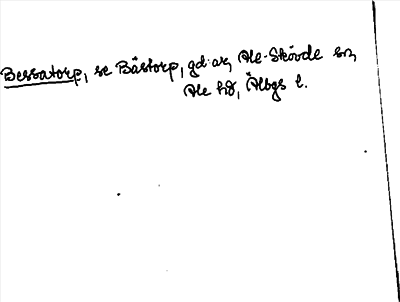 Bessatorp, se Båstorp, gd. ar, Ale-Skövde sn,
Ale hd, Älvbgs l.